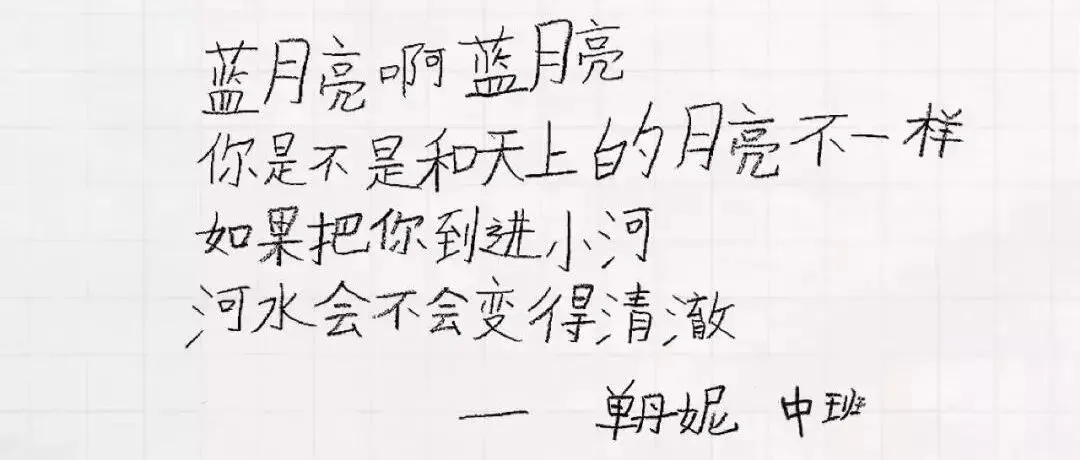 蓝月亮啊蓝月亮
你是不是和天上的月亮不一样
如果把你到进小河
河水会不会变得清澈
—— 单丹妮 中班